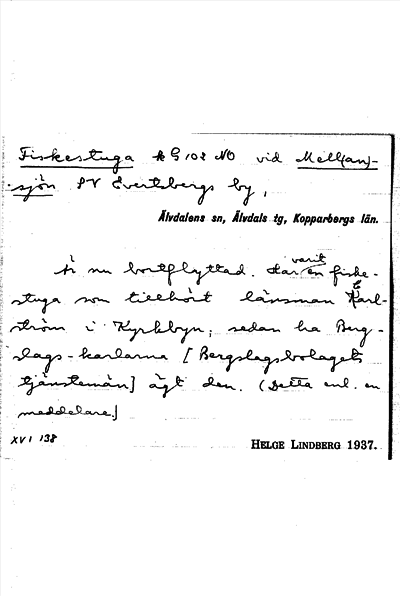 Fiskestuga k G 102 NO vid Mell(an)-
sjön SV Evertsbergs by,
Älvdalens sn, Älvdals tg, Kopparbergs län.
Är nu bortflyttad. Har varit en fiske-
stuga som tillhört länsman Karl-
ström i Kyrkbyn; sedan ha Berg-
slags-karlarna [Bergslagsbolagets
tjänstemän] ägt den. (Detta enl. en
meddelare.)
XVI 138
HELGE LINDBERG 1937.